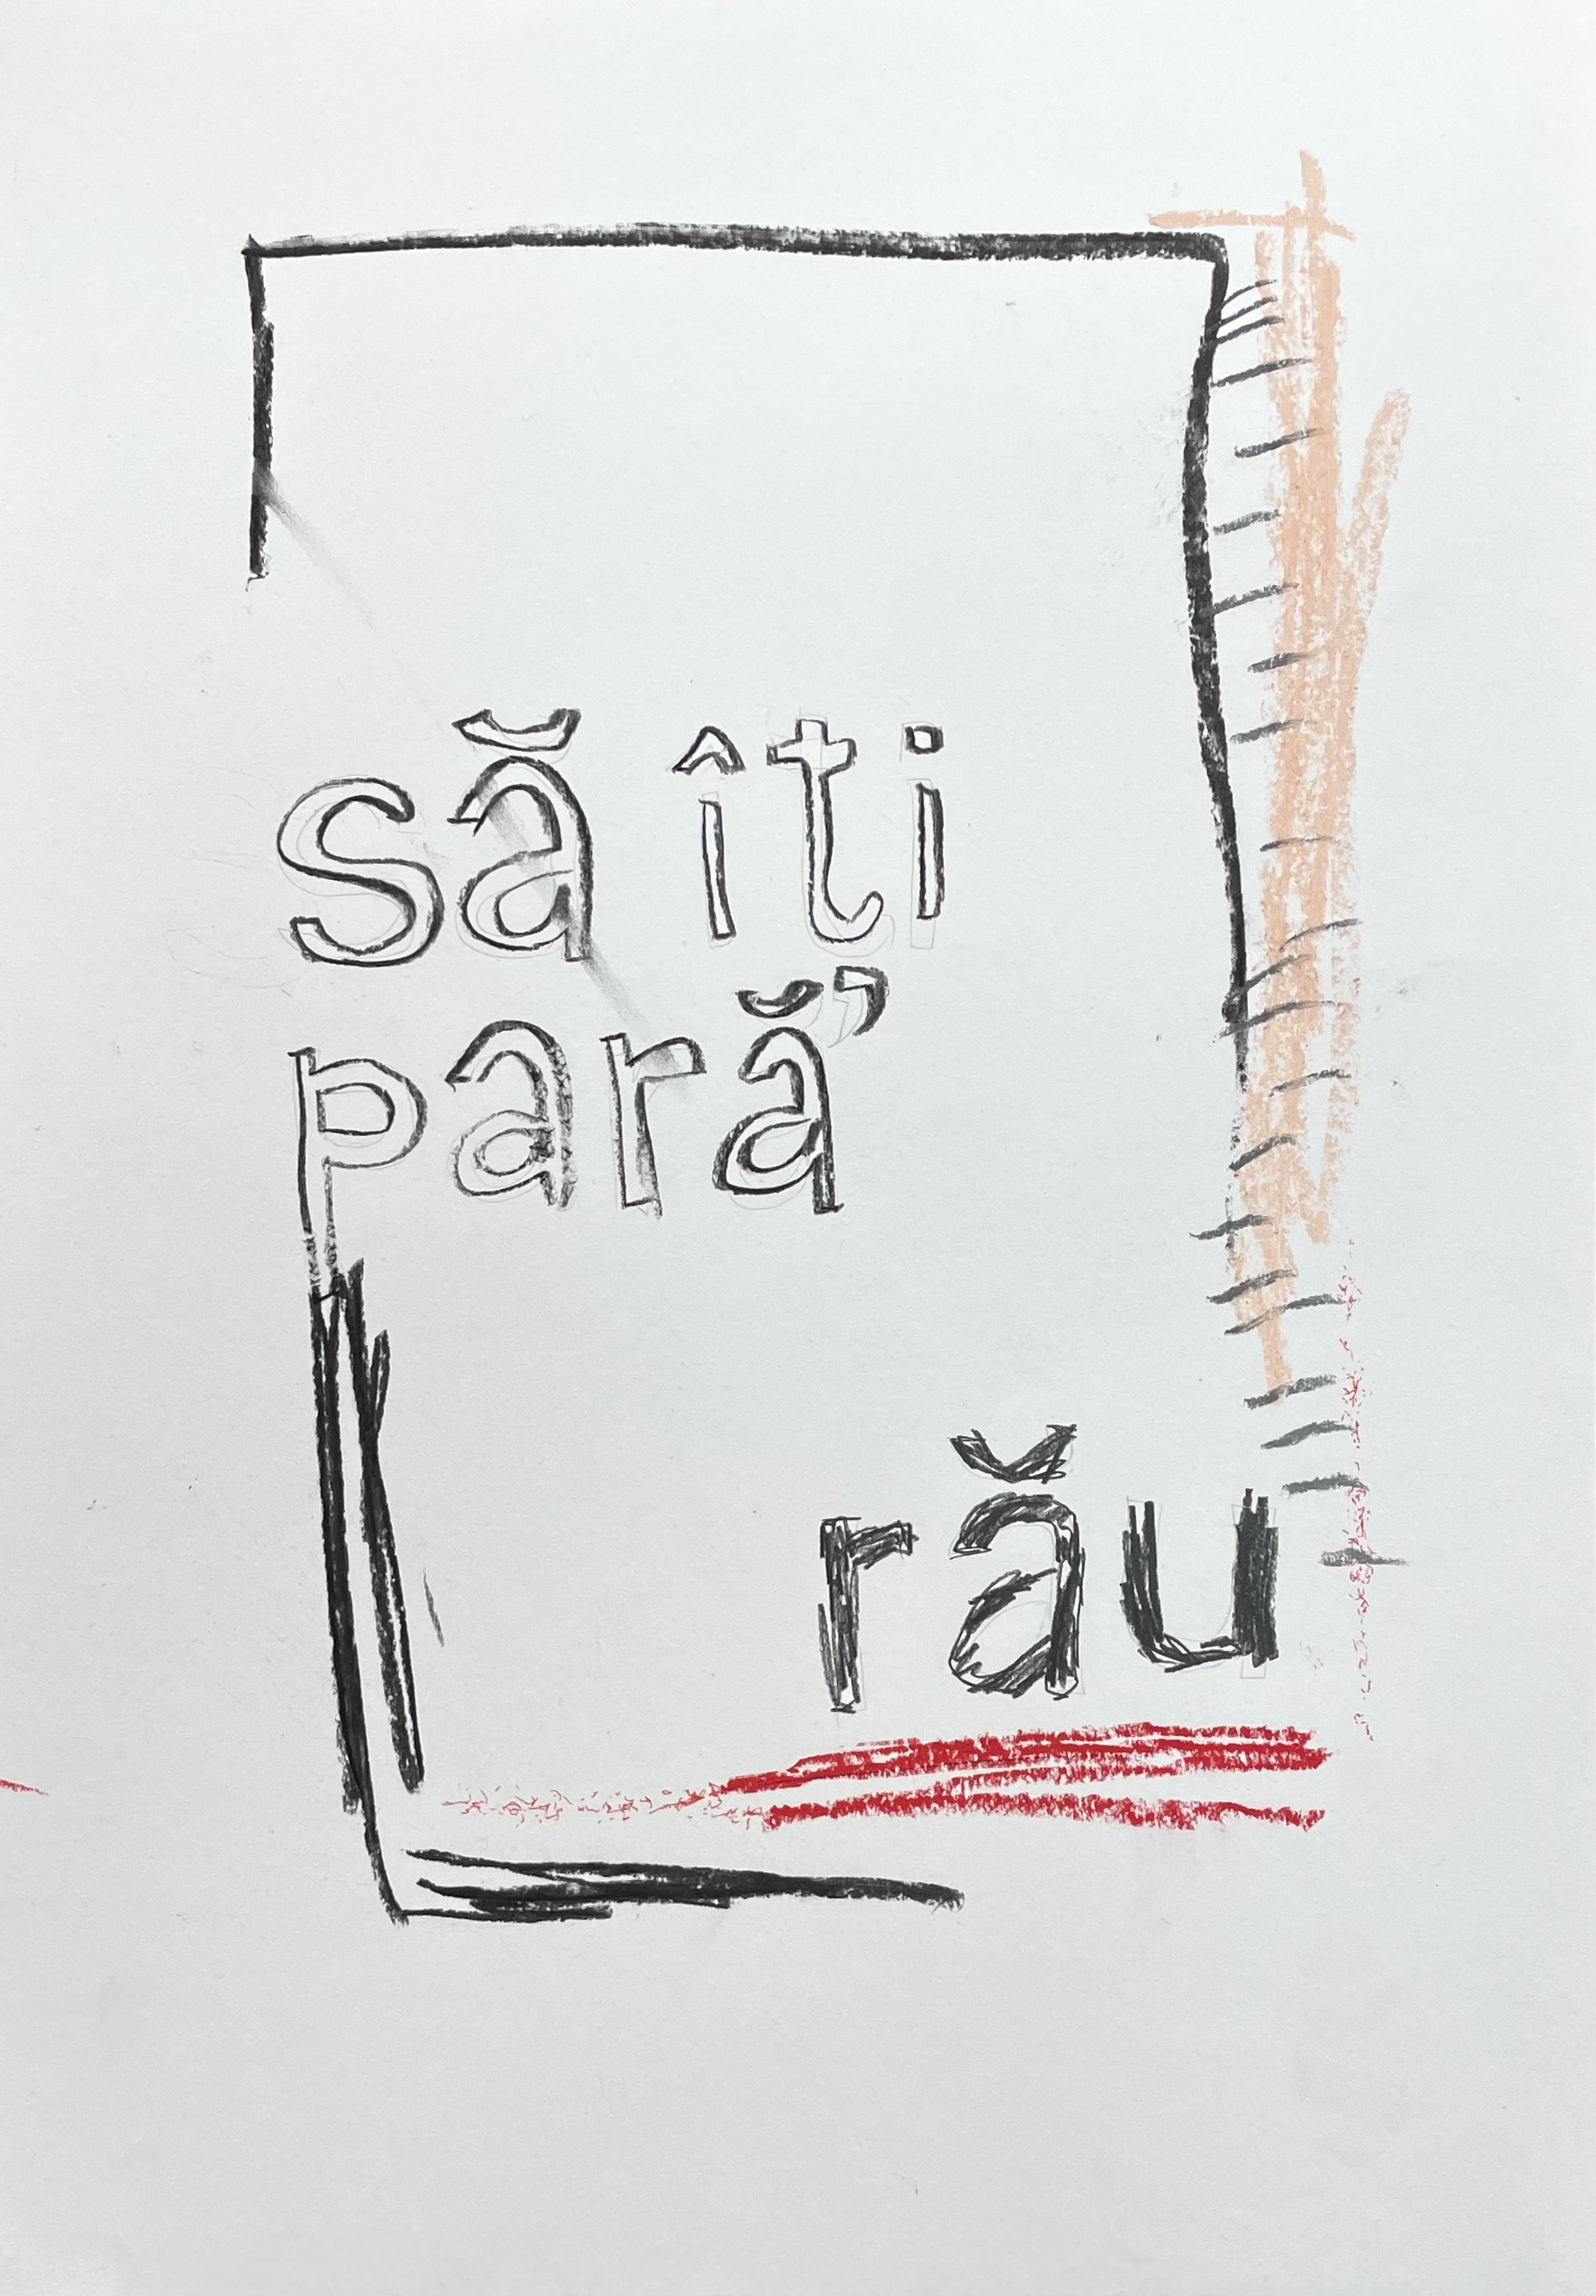 să îți
pară
rău